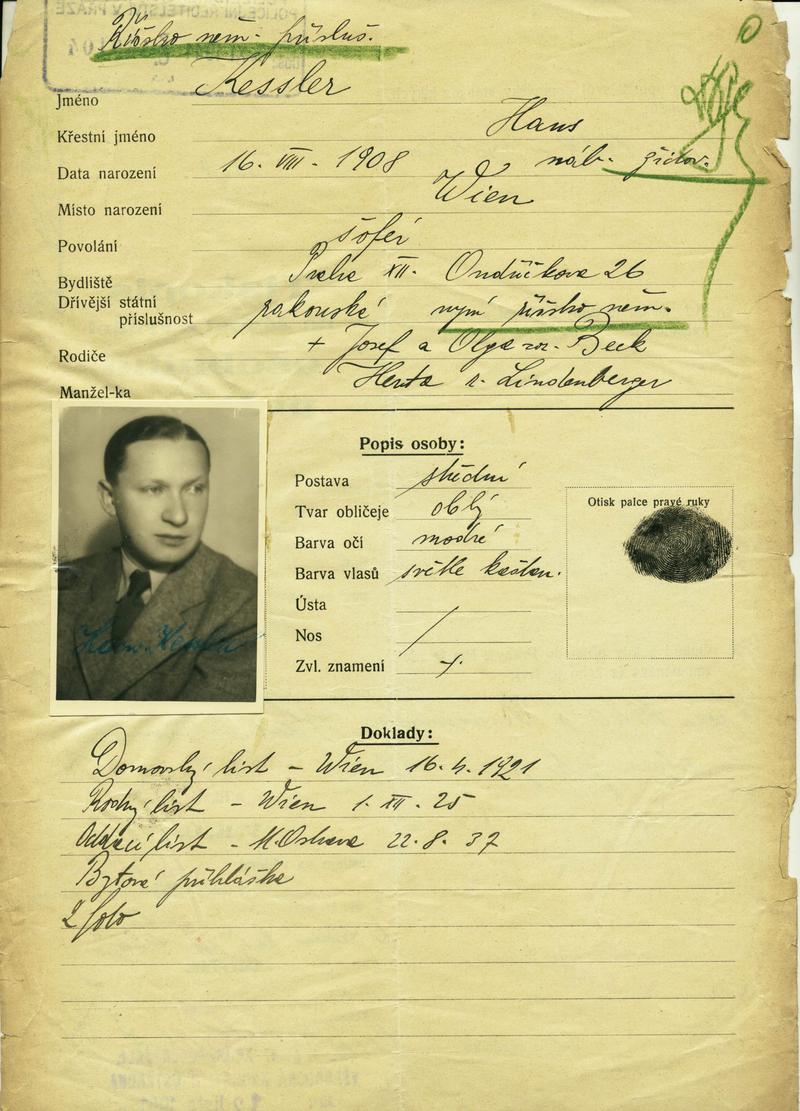 POLICEJNÍ ŘEDITELSTVÍ V PRAZE
Říšsko něm. přísluš.
Jméno Kessler
Křestní jméno Hans
Data narození 16. VIII. 1908 náb. židov.
Místo narození Wien
Povolání šofér
Bydliště Praha XII. Ondříčkova 26
Dřívější státní
příslušnost rakouská nyní říšsko něm.
Rodiče + Josef a Olga roz. Beck
Manžel-ka Herta r. Lindenberger
Popis osoby:
Postava střední
Tvar obličeje oblý
Barva očí modré
Barva vlasů světle kaštan.
Ústa
Nos /
Zvl. znamení
Otisk palce pravé ruky
Hans Kessler
Doklady:
Domovský list – Wien 1921
Rodný list – Wien 1. XII. 25
Oddací list – M. Ostrava 22. 8. 37
Bytová přihláška
2 foto